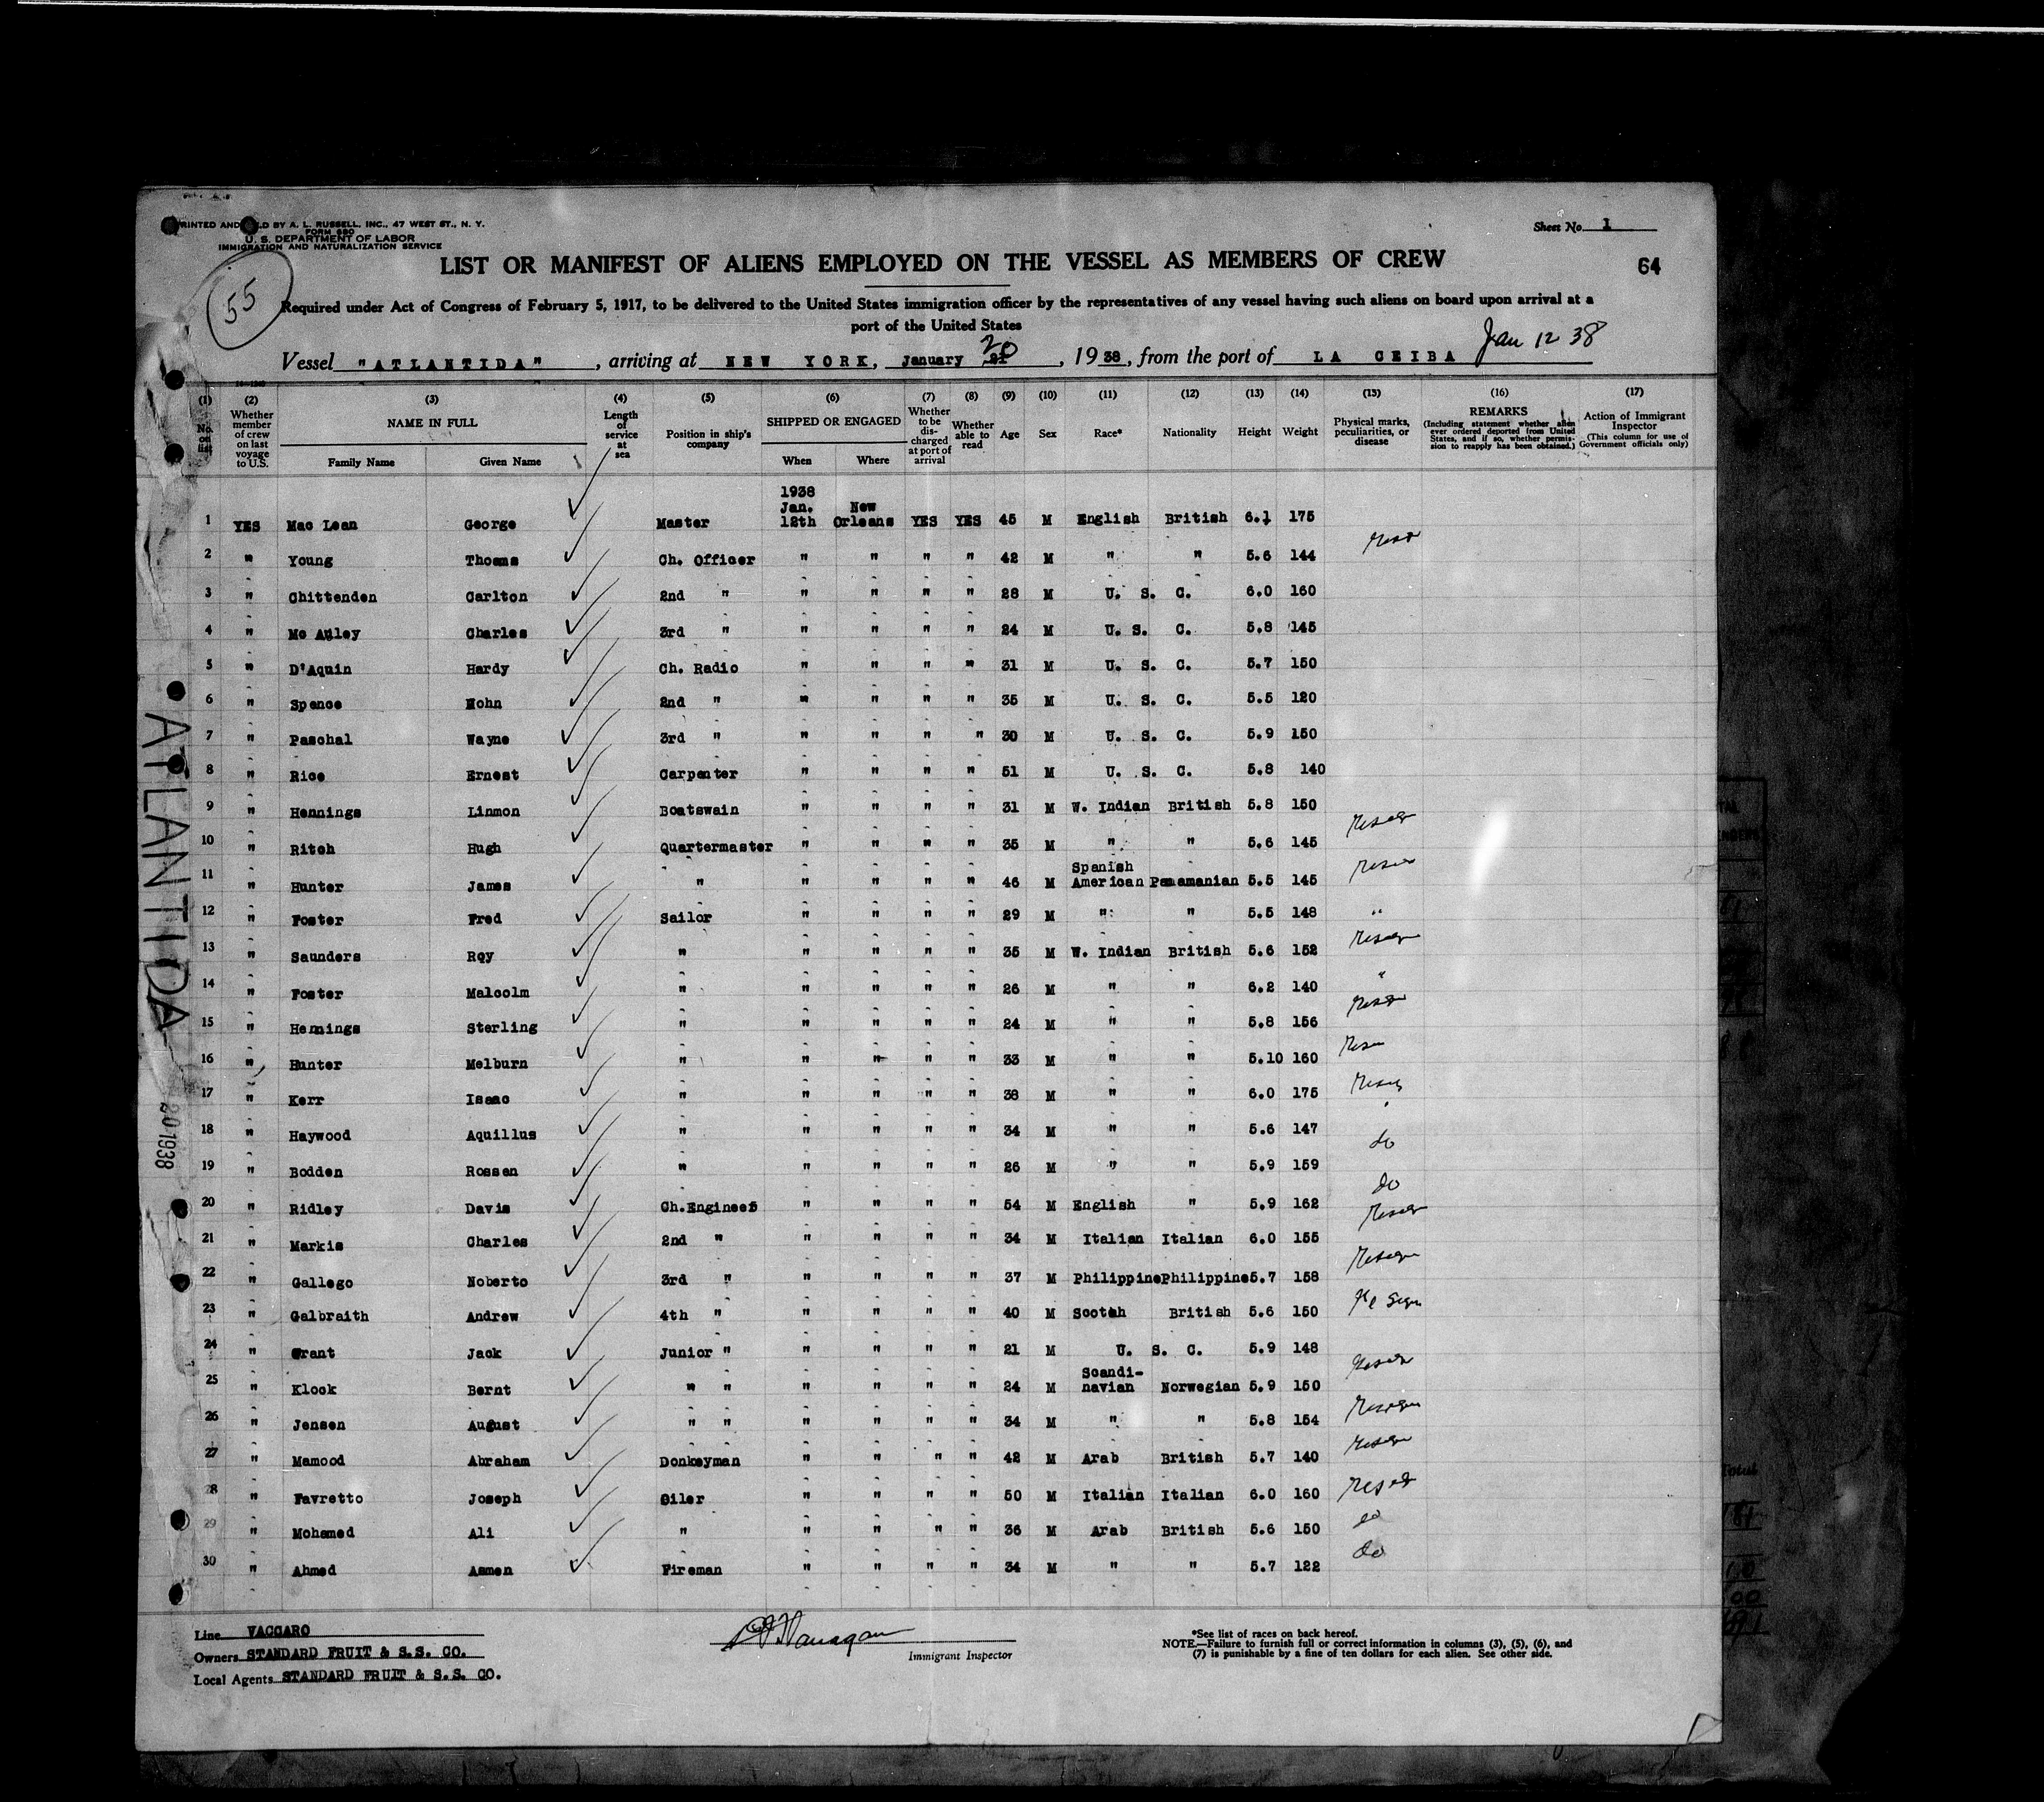 PRINTED AND SOLD BY A. L. RUSSELL, INC., 47 WEST ST., N. Y.
FORM 680
U. S. DEPARTMENT OF LABOR
IMMIGRATION AND NATURALIZATION SERVICE
Sheet No. 1
55
LIST OR MANIFEST OF ALIENS EMPLOYED ON THE VESSEL AS MEMBERS OF CREW
64
Required under Act of Congress of February 5, 1917, to be delivered to the United States immigration officer by the representatives of any vessel having such aliens on board upon arrival at a
port of the United States
Jan 12 38
20
Vessel "ATLANTIDA", arriving at NEW YORK, January 21, 1938, from the port of LA CEIBA
(1) (2) (3) (4) (5) (6) (7) (8) (9) (10) (11) (12) (13) (14) (15) (16) (17)
No. on list Whether member of crew on last voyage to U.S. NAME IN FULL Family Name Given Name Length of service at sea Position in ship's company SHIPPED OR ENGAGED When Where Whether to be discharged at port of arrival Whether able to read Age Sex Race* Nationality Height Weight Physical marks, peculiarities, or disease REMARKS (Including statement whether alien ever ordered deported from United States, and if so, whether permission to reapply has been obtained.) Action of Immigrant Inspector (This column for use of Government officials only)
1 YES Mac Lean George Master 1938 Jan. 12th New Orleans YES YES 45 M English British 6.1 175
2 " Young Thomas Ch. Officer " " " " 42 M " " 5.6 144
3 " Chittenden Carlton 2nd " " " " " 28 M U. S. C. 6.0 160
4 " Mc Auley Charles 3rd " " " " " 24 M U. S. C. 5.8 145
5 " D'Aquin Hardy Ch. Radio " " " " 31 M U. S. C. 5.7 150
6 " Spence Nohn 2nd " " " " " 35 M U. S. C. 5.5 120
7 " Paschal Wayne 3rd " " " " " 30 M U. S. C. 5.9 150
8 " Rice Ernest Carpenter " " " " 51 M U. S. C. 5.8 140
9 " Hennings Linmon Boatswain " " " " 31 M W. Indian British 5.8 150
10 " Ritch Hugh Quartermaster " " " " 35 M " " 5.6 145
11 " Hunter James " " " " " 46 M Spanish American Panamanian 5.5 145
12 " Foster Fred Sailor " " " " 29 M " " 5.5 148 "
13 " Saunders Roy " " " " " 35 M W. Indian British 5.6 152
14 " Foster Malcolm " " " " " 26 M " " 6.2 140 "
15 " Hennings Sterling " " " " " 24 M " " 5.8 156
16 " Hunter Melburn " " " " " 33 M " " 5.10 160
17 " Kerr Isaac " " " " " 38 M " " 6.0 175
18 " Haywood Aquillus " " " " " 34 M " " 5.6 147 do
19 " Bodden Rossen " " " " " 26 M " " 5.9 159 do
20 " Ridley Davis Ch.Engineer " " " " 54 M English " 5.9 162
21 " Markis Charles 2nd " " " " " 34 M Italian Italian 6.0 155
22 " Gallego Noberto 3rd " " " " " 37 M Philippine Philippine 5.7 158
23 " Galbraith Andrew 4th " " " " " 40 M Scotch British 5.6 150
24 " Grant Jack Junior " " " " " 21 M U. S. C. 5.9 148
25 " Klock Bernt " " " " " " 24 M Scandi-navian Norwegian 5.9 150
26 " Jensen August " " " " " " 34 M " " 5.8 154
27 " Mamood Abraham Donkeyman " " " " 42 M Arab British 5.7 140
28 " Favretto Joseph Oiler " " " " 50 M Italian Italian 6.0 160
29 " Mohamed Ali " " " " " 36 M Arab British 5.6 150 do
30 " Ahmed Asmen Fireman " " " " 34 M " " 5.7 122 do
ATLANTIDA
20 1938
Line VACCARO
Owners STANDARD FRUIT & S.S. CO.
Local Agents STANDARD FRUIT & S.S. CO.
Immigrant Inspector
*See list of races on back hereof.
NOTE.—Failure to furnish full or correct information in columns (3), (5), (6), and
(7) is punishable by a fine of ten dollars for each alien. See other side.